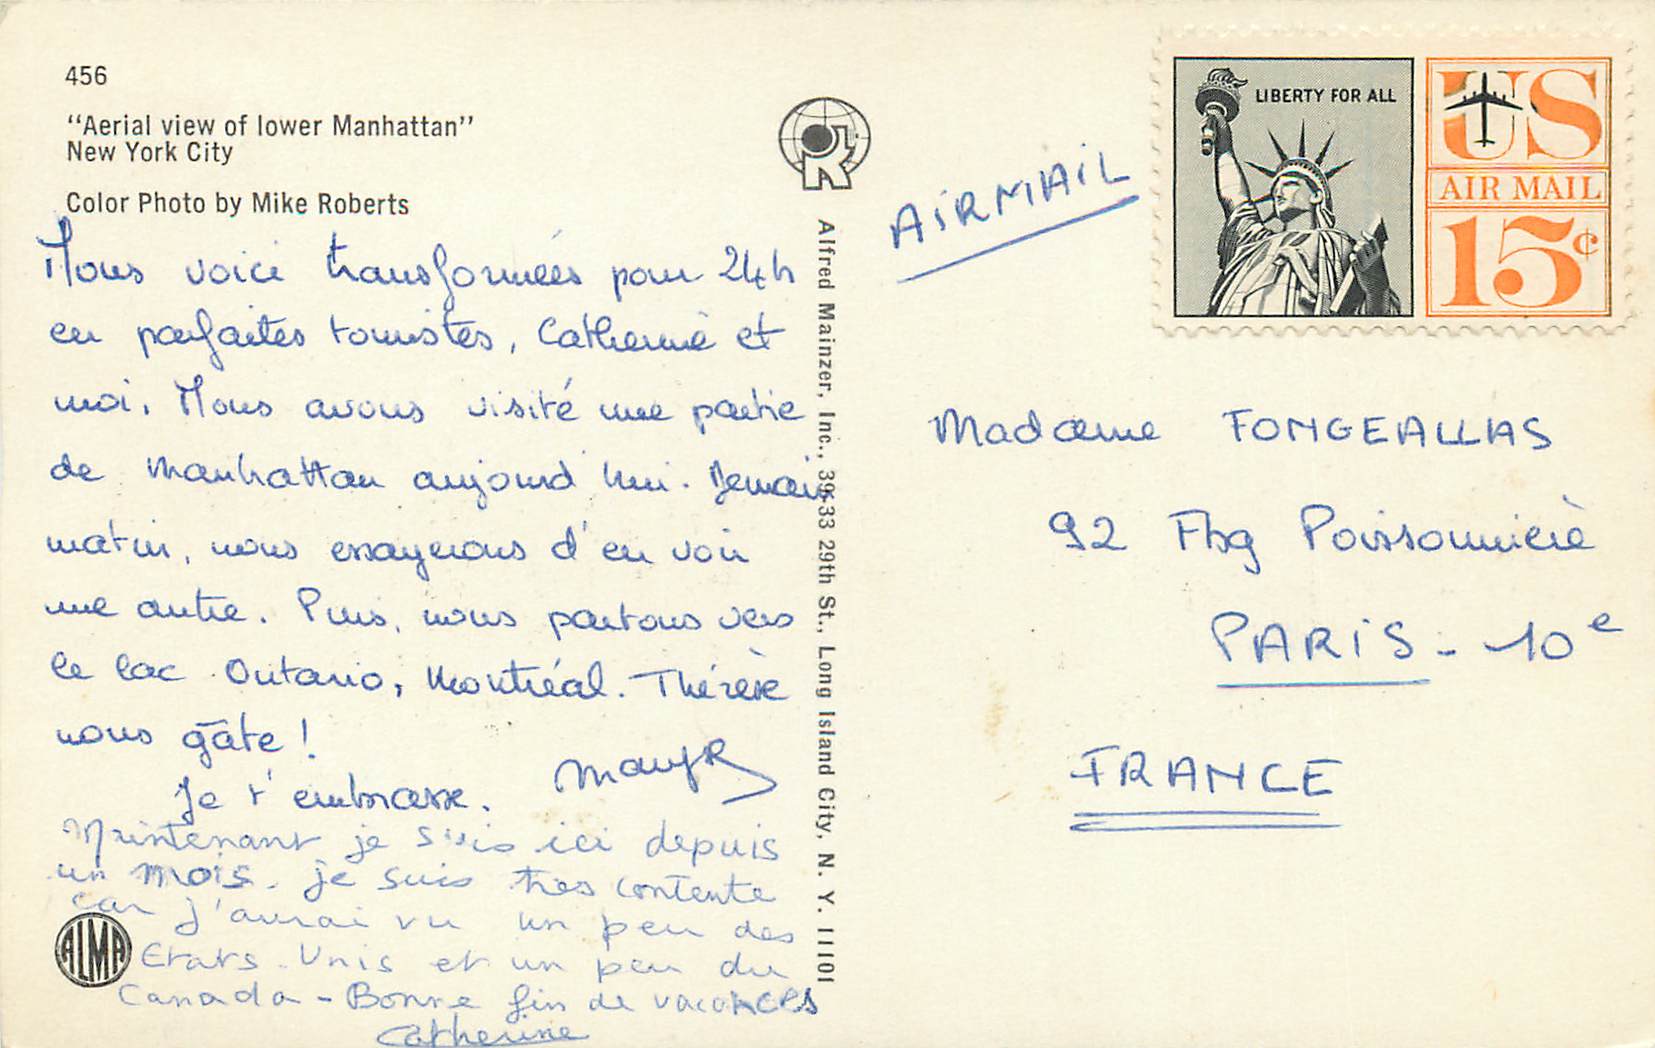 456
"Aerial view of lower Manhattan"
New York City
Color Photo by Mike Roberts
Nous voici transformées pour 24h
en parfaites touristes, Catherine et
moi. Nous avons visité une partie
de Manhattan aujourd'hui. Demain
matin, nous essayerons d'en voir
une autre. Puis, nous partons vers
le lac Ontario, Montréal. Thérèse
nous gâte !
Je t'embrasse.
Maintenant je suis ici depuis
un mois. je suis très contente
car j'aurai vu un peu des
Etats-Unis et un peu du
Canada - Bonne fin de vacances
Catherine
ALMA
Alfred Mainzer, Inc., 39-33 29th St., Long Island City, N. Y. 11101
AIRMAIL
LIBERTY FOR ALL
US
AIR MAIL
15¢
Madame FONGEALLAS
92 Fbg Poissonnière
PARIS - 10e
FRANCE